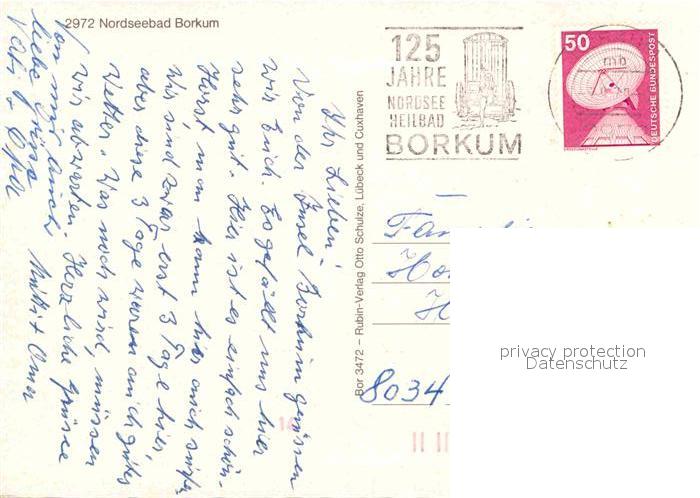 2972 Nordseebad Borkum
125
JAHRE
NORDSEE
HEILBAD
BORKUM
50
DEUTSCHE BUNDESPOST
Ihr Lieben!
Von der Insel Borkum grüssen
wir Euch. Es gefällt uns hier
sehr gut. Hier ist es einfach schön.
Horst man kann hier auch
Wir sind zwar erst 3 Tage hier,
aber diese 3 Tage waren auch gutes
Wetter. Was noch wird, müssen
wir abwarten. Herzliche Grüsse
Mutti + Oma
Von mir auch
liebe Grüsse
Vati + Opa
Bor 3472 – Rubin-Verlag Otto Schulze, Lübeck und Cuxhaven
8034
privacy protection
Datenschutz